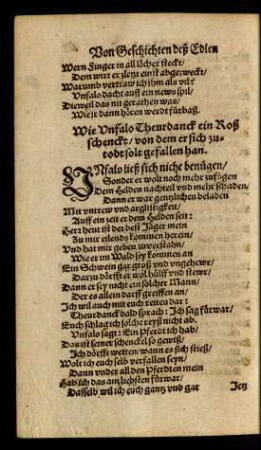 Von Geschichten deß Edlen
Wern Finger in all löcher steckt/
Dem wirt er zletzt einst abgezweckt/
Warumb vertraw ich jhm als vil?
Vnfalo dacht auff ein new spil/
Dieweil das nit gerathen was/
Wie jr dann hören werdt fürbaß.
Wie Vnfalo Theurdanck ein Roß
schenckt/ von dem er sich zu-
todt solt gefallen han.
VNfalo ließ sich nicht benügen/
Sonder er wolt noch mehr zufügen
Dem Helden nachteil vnd mehr schaden/
Dann er war gentzlichen beladen
Mit vntrew vnd arglistigkeit/
Auff ein zeit er dem Helden seit:
Herr heut ist der best Jäger mein
Zu mir eilends kommen herein/
Vnd hat mir geben zu verstahn/
Wie er im Wald sey kommen an
Ein Schwein gar groß vnd vngehewr/
Darzu dörfft er wol hülff vnd stewr/
Dann er sey nicht ein solcher Mann/
Der es allein darff greiffen an/
Ich wil auch mit euch reiten dar:
Theurdanck bald sprach: Ich sag fürwar/
Euch schlag ich solche reyß nicht ab.
Vnfalo sagt: Ein Pferdt ich hab/
Das ist seiner schenckel so gewiß/
Ich dörfft wetten/ wann es sich stieß/
Wolt ich euch selb verfallen seyn/
Dann vnder all den Pferdten mein
Hab ich das am liebsten fürwar/
Dasselb wil ich euch gantz vnd gar
Jetz